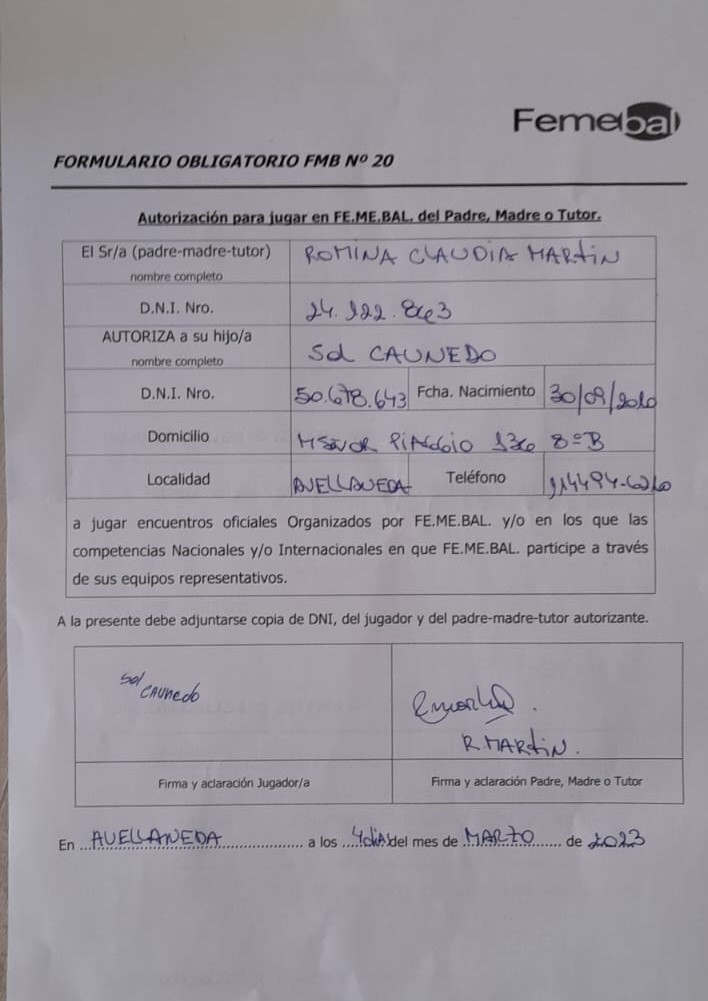 Femebal
FORMULARIO OBLIGATORIO FMB Nº 20
Autorización para jugar en FE.ME.BAL. del Padre, Madre o Tutor.
El Sr/a (padre-madre-tutor) ROMINA CLAUDIA MARTIN
nombre completo
D.N.I. Nro. 24.122.843
AUTORIZA a su hijo/a
nombre completo Sol CAUNEDO
D.N.I. Nro. 50.678.643 Fcha. Nacimiento 30/09/2010
Domicilio PIAGGIO 8º B
Localidad AVELLANEDA Teléfono
a jugar encuentros oficiales Organizados por FE.ME.BAL. y/o en los que las
competencias Nacionales y/o Internacionales en que FE.ME.BAL. participe a través
de sus equipos representativos.
A la presente debe adjuntarse copia de DNI, del jugador y del padre-madre-tutor autorizante.
Sol
CAUNEDO
R MARTIN.
Firma y aclaración Jugador/a Firma y aclaración Padre, Madre o Tutor
En AVELLANEDA a los 4 dias del mes de MARZO de 2023